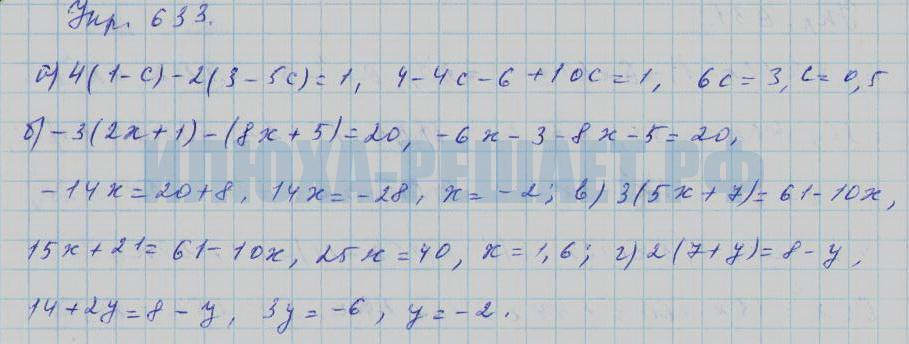 Упр. 633.
а) 4(1-c)-2(3-5c)=1, 4-4c-6+10c=1, 6c=3, c=0,5
б) -3(2x+1)-(8x+5)=20, -6x-3-8x-5=20,
ИЛЮХА-РЕШАЕТ.РФ
-14x=20+8, 14x=-28, x=-2; в) 3(5x+7)=61-10x,
15x+21=61-10x, 25x=40, x=1,6; г) 2(7+y)=8-y,
14+2y=8-y, 3y=-6, y=-2.